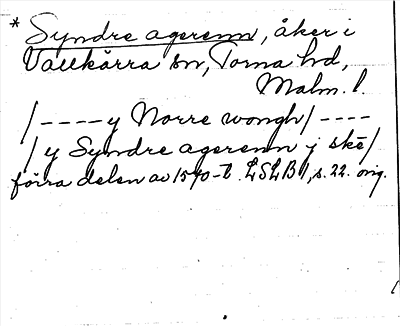 * Syndre agerenn, åker i
Vallkärra sn, Torna hd,
Malm. l.
/----y Norre wongh/----
/y Syndre agerenn j skē/
förra delen av 1570-t. LSLB 1, s. 22. orig.